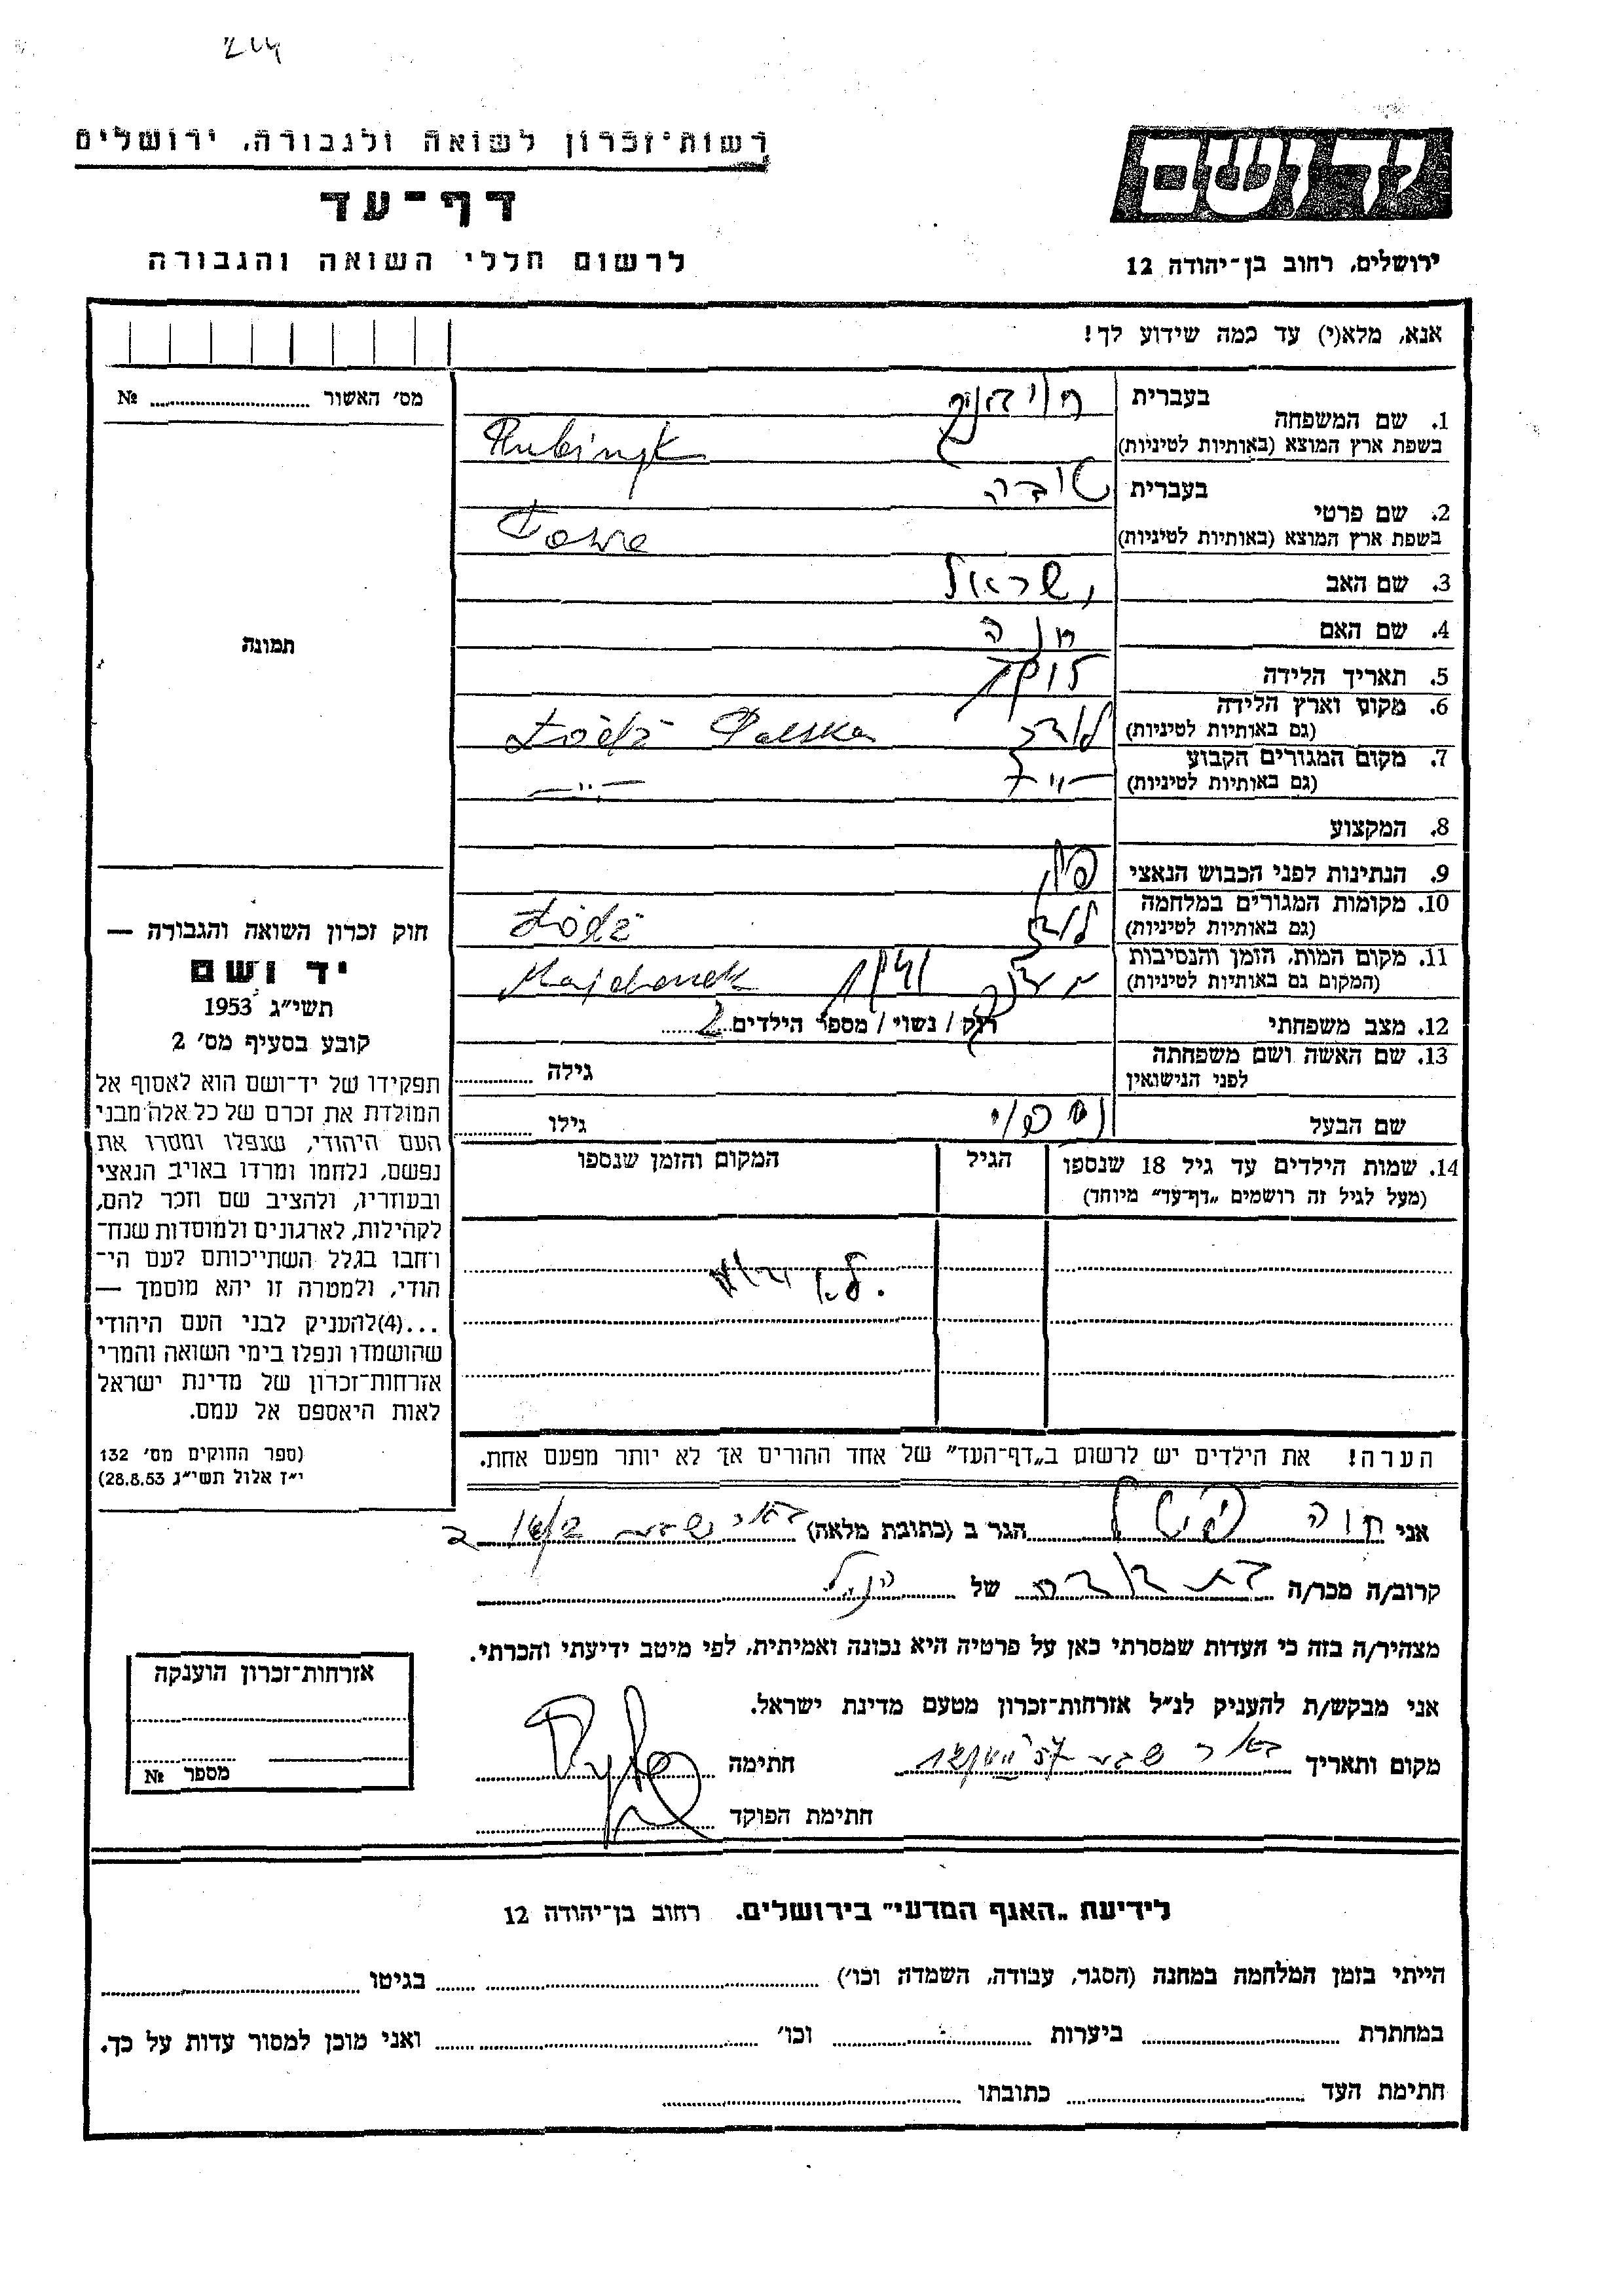 רשות־זכרון לשואה ולגבורה, ירושלים
דף־עד
לרשום חללי השואה והגבורה
יד ושם
ירושלים, רחוב בן־יהודה 12
אנא, מלא(י) עד כמה שידוע לך!
מס׳ האשור № 
1. שם המשפחה
בעברית
בשפת ארץ המוצא (באותיות לטיניות)
2. שם פרטי
בעברית טובה
בשפת ארץ המוצא (באותיות לטיניות)
3. שם האב ישראל
4. שם האם חנה
5. תאריך הלידה
6. מקום וארץ הלידה
(גם באותיות לטיניות) לודז Łódź Polska
7. מקום המגורים הקבוע
(גם באותיות לטיניות) —„—
8. המקצוע
9. הנתינות לפני הכבוש הנאצי
10. מקומות המגורים במלחמה
(גם באותיות לטיניות) לודז Łódź
11. מקום המות, הזמן והנסיבות
(המקום גם באותיות לטיניות) Majdanek
12. מצב משפחתי רוק / נשוי / מספר הילדים 2
13. שם האשה ושם משפחתה
לפני הנישואין גילה
שם הבעל גילו
14. שמות הילדים עד גיל 18 שנספו הגיל המקום והזמן שנספו
(מעל לגיל זה רושמים „דף־עד״ מיוחד)
הערה! את הילדים יש לרשום ב„דף־העד״ של אחד ההורים אך לא יותר מפעם אחת.
תמונה
חוק זכרון השואה והגבורה —
יד ושם
תשי״ג 1953
קובע בסעיף מס׳ 2
תפקידו של יד־ושם הוא לאסוף אל
המולדת את זכרם של כל אלה מבני
העם היהודי, שנפלו ומסרו את
נפשם, נלחמו ומרדו באויב הנאצי
ובעוזריו, ולהציב שם וזכר להם,
לקהילות, לארגונים ולמוסדות שנח־
רחבו בגלל השתייכותם לעם הי־
הודי, ולמטרה זו יהא מוסמך —
...(4)להעניק לבני העם היהודי
שהושמדו ונפלו בימי השואה והמרי
אזרחות־זכרון של מדינת ישראל
לאות היאספם אל עמם.
(ספר החוקים מס׳ 132
י״ז אלול תשי״ג 28.8.53)
אני חוה הגר ב (כתובת מלאה) באר שבע
קרוב/ה מכר/ה בת דודה של הנ״ל
מצהיר/ה בזה כי העדות שמסרתי כאן על פרטיה היא נכונה ואמיתית, לפי מיטב ידיעתי והכרתי.
אני מבקש/ת להעניק לנ״ל אזרחות־זכרון מטעם מדינת ישראל.
מקום ותאריך באר שבע חתימה
חתימת הפוקד
אזרחות־זכרון הוענקה
מספר №
לידיעת „האגף המדעי״ בירושלים. רחוב בן־יהודה 12
הייתי בזמן המלחמה במחנה (הסגר, עבודה, השמדה וכו׳) בגיטו
במחתרת ביערות וכו׳ ואני מוכן למסור עדות על כך.
חתימת העד כתובתו